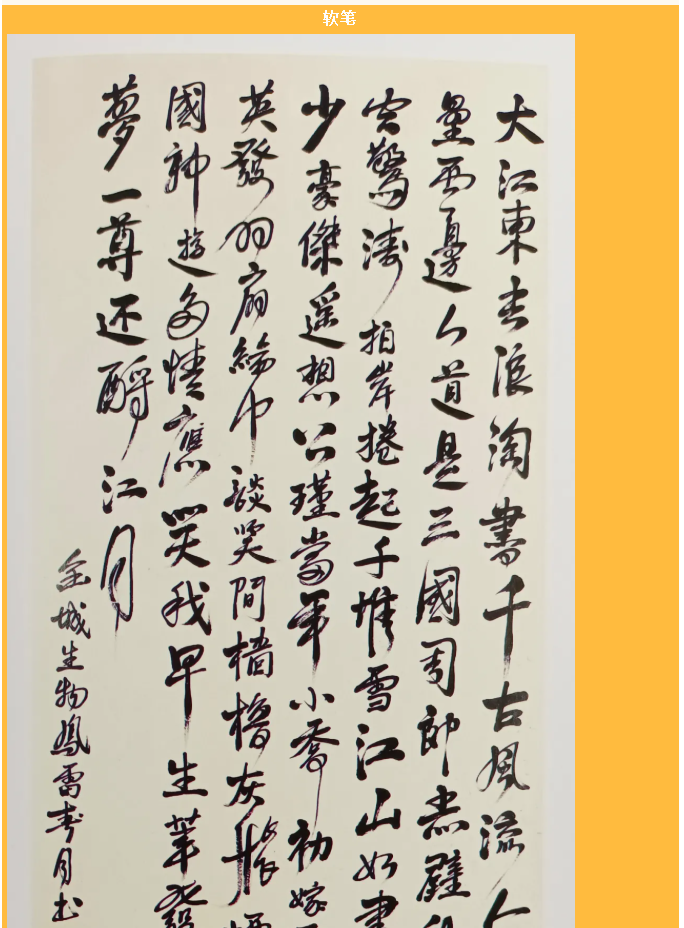 软笔
大江東去浪淘書千古風流人
壘西邊人道是三國周郎赤壁
空驚濤拍岸捲起千堆雪江山如畫
少豪傑遥想公瑾當年小喬初嫁
英發羽扇綸巾談笑間檣櫓灰
國神遊多情應笑我早生華髮
夢一尊还酹江月
城生物鳳雷春月书